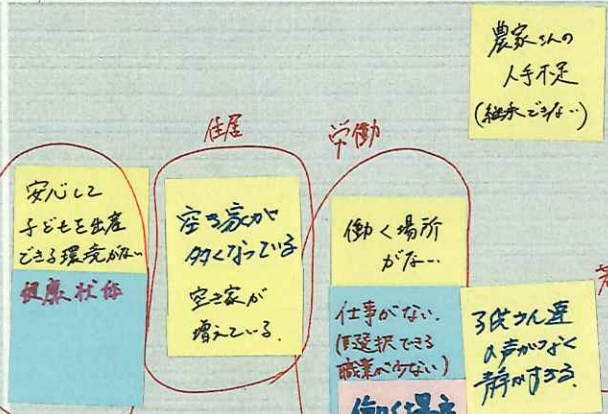 農家さんの
人手不足
(継承できない)
住居
労働
安心して
子どもを出産
できる環境がない
健康状体
空き家が
多くなっている
空き家が
増えている。
働く場所
がない
仕事がない。
職業が少ない)
働く場所
子供さん達
の声がなく
静かすぎる。